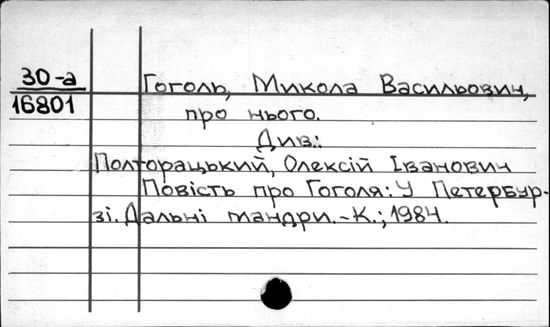 30-а
16801
Гоголь, Микола Васильович,
про нього.
Див.:
Полторацький, Олексій Іванович
Повість про Гоголя: У Петербур-
зі. Дальні мандри.-К.; 1984.